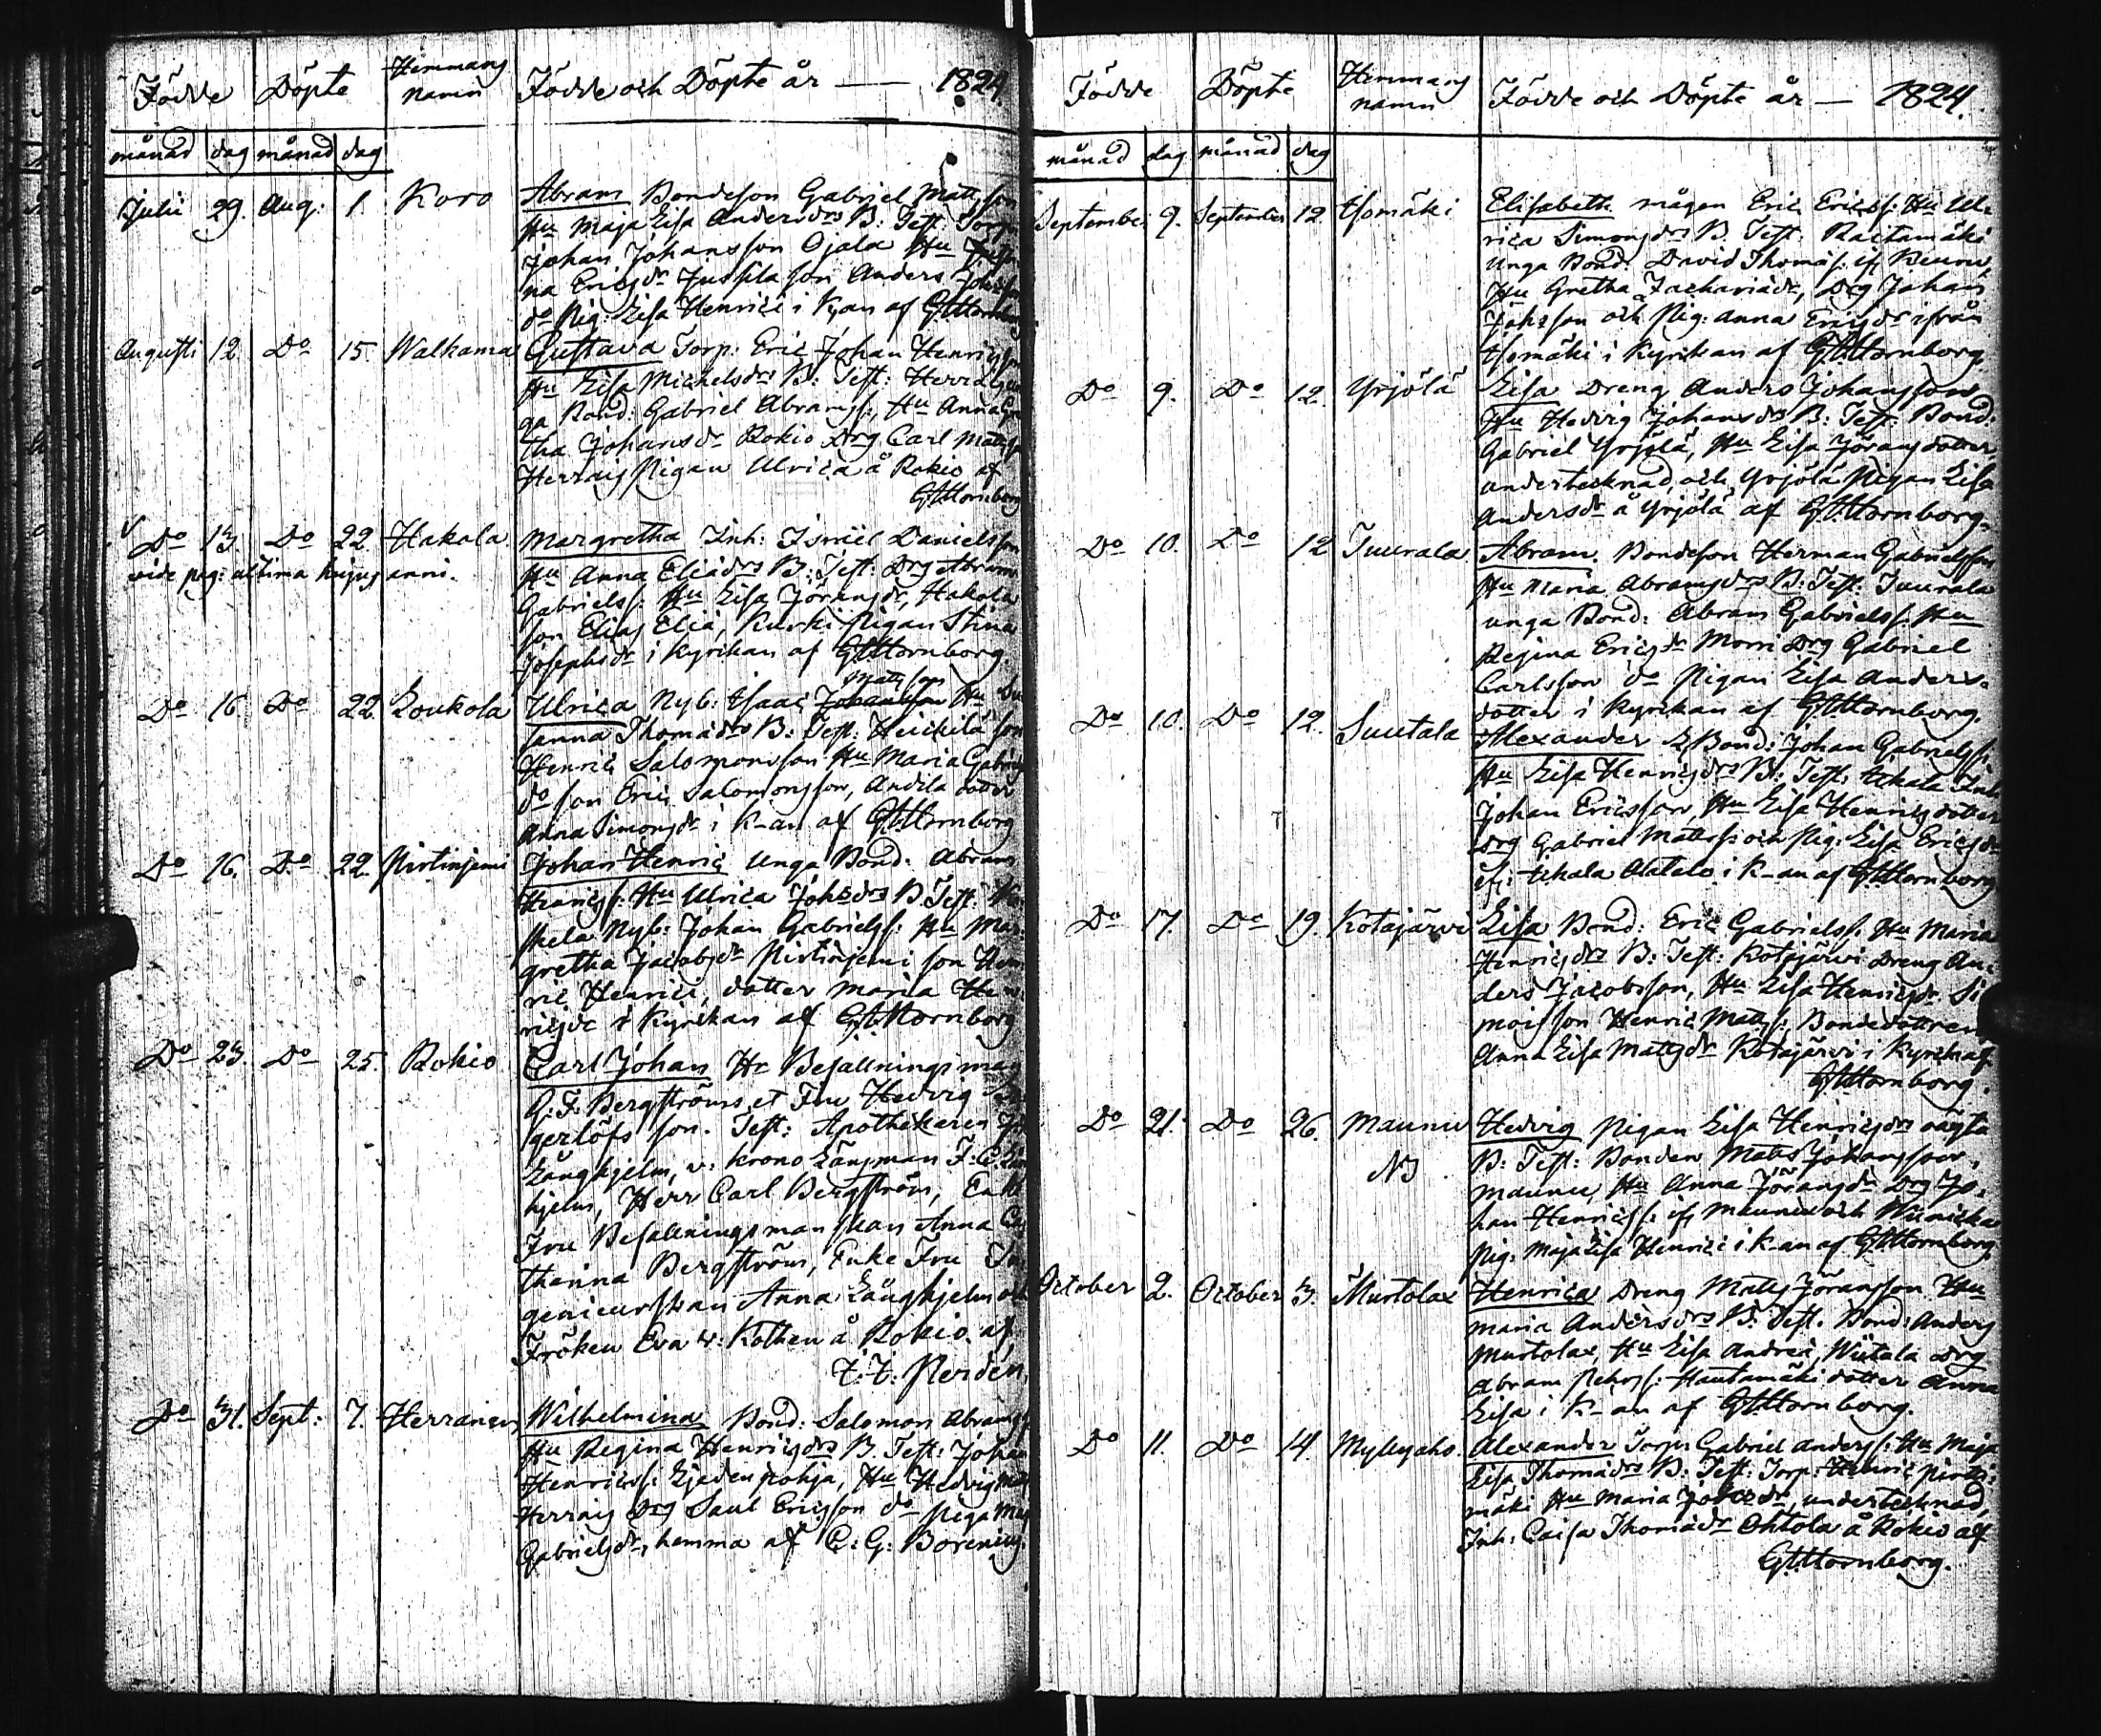 Födde Döpte Hemmans namn Födde och Döpte år — 1824.
månad dag månad dag
Julii 29. Aug: 1. Koro Abram Bondeson Gabriel Mattsson
Hu Maja Lisa Andersdrs B: Test: Torp:
Johan Johansson Ojala Hu
na Ericsdr Juskila son Anders
do Pig: Lisa Henrici i K,an af GHHornborg
Augusti 12. Do 15. Walkama Gustava Torp: Eric Johan Henricsson
Hu Lisa Michelsdrs B: Test: Herraig
ga Bond: Gabriel Abramss: Hu Anna
tha Johansdr Rokio Drg Carl Matts
Herraig Pigan Ulrica å Rokio af
GHHornborg
Do 13. Do 22. Hakola. Margretha Inh: Israel Danielsson
vide pag: ultima hujus anni.
Hu Anna Eliädrs B: Test: Drg Abram
Gabrielss: Hu Lisa Jöransdr, Hakola
son Elias Eliä, Kurki Pigan Stina
Josephsdr i Kyrikan af GHHornborg.
Mattsson
Do 16. Do 22. Loukola Ulrica Nyb: Isaac Johansson Hu Su
sanna Thomädrs B: Test: Heickilä son
Henric Salomonsson Hu Maria Gabriels
do son Eric Salomonsson, Andila dotter
Anna Simonsdr i K-an af GHHornborg
Do 16. Do 22. Pirtinjemi Johan Henric Unga Bond: Abram
Henricss: Hu Ulrica Johsdrs B Test:
skela Nyb: Johan Gabrielss: Hu Mar
gretha Jacobsdr Pirtinjemi son Hen
ric Henrici, dotter Maria Hen
ricsdr i Kyrikan af GHHornborg
Do 23. Do 25. Rokio Carl Johan Hr Befallningsman
G. F. Bergströms et Fru Hedvig
gerlöfs son. Test: Apothekaren
Långhjelm, v: Krono Länsman F: C: Lång
hjelm, Herr Carl Bergström, Enke
Fru Befallningsmanskan Anna Ca
tharina Bergström, Enke Fru In
genieurskan Anna Långhjelm och
Fröken Eva v: Kothen å Rokio. af
t. t. Perdén,
Do 31. Sept: 7. Herranen Wilhelmina Bond: Salomon Abramss
Hu Regina Henricsdrs B. Test: Johan
Henricss: Ljedenpohja, Hu Hedvig Matts
Herraig Drg Saul Ericsson do Piga Maj
Gabrielsdr, hemma af C: G: Borenius.
Födde Döpte Hemmans namn Födde och Döpte år — 1824.
månad dag månad dag
September 9. September 12. Isomäki Elisabeth mågen Eric Ericss: Hu Ul-
rica Simonsdrs B. Test. Raetamäki
Unga Bond: David Thomäs: if
Hu Gretha Zachariädr, Drg Johan
Johsson och Pig: Anna Ericsdr ifrån
Isomäki i Kyrikan af GHHornborg.
Do 9. Do 12. Yrjölä Lisa Dreng Anders Johanssons
Hu Hedvig Johansdrs B: Test: Bond:
Gabriel Yrjölä, Hu Lisa Jöransdotter,
undertecknad, och Yrjölä Pigan Lisa
Andersdr å Yrjölä af GHHornborg.
Do 10. Do 12 Tuurala Abram. Bondeson Herman Gabrielsson
Hu Maria Abramsdrs B: Test: Tuurala
unga Bond: Abram Gabrielss: Hu
Regina Ericsdr Morri Drg Gabriel
Carlsson do Pigan Lisa Anders-
dotter i Kyrikan af GHHornborg.
Do 10. Do 12. Suutala Alexander L Bond: Johan Gabrielss:
Hu Lisa Henricsdrs B: Test: Uhala Inh
Johan Ericsson, Hu Lisa Henricsdotter
Drg Gabriel Mattss: och Pig: Lisa Ericsdr
if: Uhala Alatalo i K-an af GHHornborg
Do 17. Do 19. Kotajärvi Lisa Bond: Eric Gabrielss: Hu Maria
Henricsdrs B: Test: Kotajärvi Dreng An-
ders Jacobsson, Hu Lisa Henricsdr Si
mois son Henric Matts: Bondedottren
Anna Lisa Mattsdr Kotajärvi i Kyrik: af
GHHornborg.
Do 21. Do 26. Maunu Hedvig Pigan Lisa Henricsdrs oägta
NB B: Test: Bonden Matts Johansson
Maunu, Hu Anna Jöransdr Drg Jo-
han Henricss: if Maunu och Wänicka
Pig: Maja Lisa Henrici i K-an af GHHornborg
October 2. October 3. Murtolax Henrica Dreng Matts Jöransson Hu
Maria Andersdrs B: Test. Bond: Anders
Murtolax, Hu Lisa Andreä, Wiitala Drg
Abram Pehrss: Hautamäki dotter Anna
Lisa i K-an af GHHornborg.
Do 11. Do 14. Myllyaho. Alexander Torp: Gabriel Anderss: Hu Maja
Lisa Thomädrs B: Test: Torp: Henric Pirtti-
mäki Hu Maria Johsdr, undertecknad,
Inh: Caisa Thomädr Ohtola å Rokio af
GHHornborg.